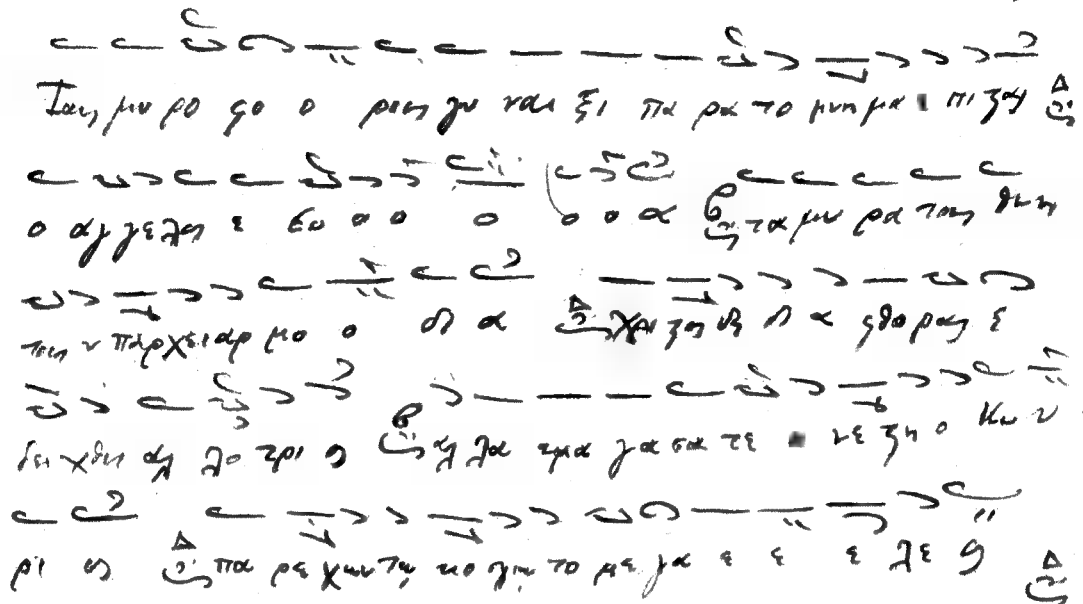 Ταις μυ ρο φο ο ροις γυ ναι ξι πα ρα το μνημα πι ζας
ο αγ γελος ε βο ο ο ο ο ο α τα μυ ρα τοις θνη
τοις υ παρχει αρ μο ο δι α χρι ζος δε δι α φθορας ε
δει χθη αλ λο τρι ος αλ λα κραυ γα σα τε νε ζη ο Κυ υ
ρι ος πα ρεχων τω κο σμω το με γα ε ε ε λε ος